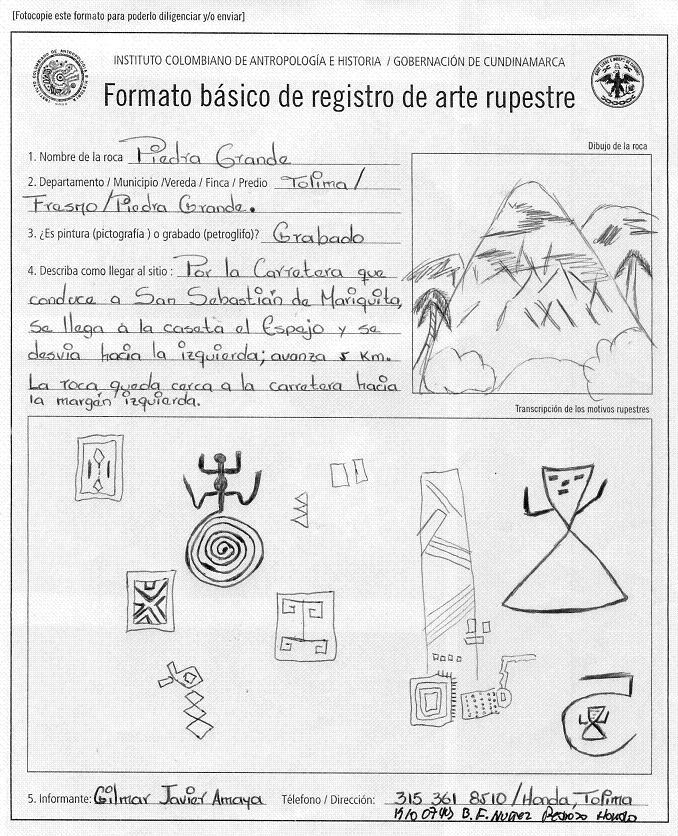 [Fotocopie este formato para poderlo diligenciar y/o enviar]
INSTITUTO COLOMBIANO DE ANTROPOLOGÍA E HISTORIA / GOBERNACIÓN DE CUNDINAMARCA
Formato básico de registro de arte rupestre
1. Nombre de la roca Piedra Grande
2. Departamento / Municipio /Vereda / Finca / Predio Tolima/
Fresno/Piedra Grande.
3. ¿Es pintura (pictografía ) o grabado (petroglifo)? Grabado
4. Describa como llegar al sitio : Por la Carretera que
conduce a San Sebastián de Mariquita,
se llega a la caseta el Espejo y se
desvia hacia la izquierda; avanza 5 Km.
La roca queda cerca a la carretera hacia
la margén izquierda.
Dibujo de la roca
Transcripción de los motivos rupestres
5. Informante: Gilmar Javier Amaya Télefono / Dirección: 315 361 8510 / Honda, Tolima
B. F. Nuñez Pedrozo Honda